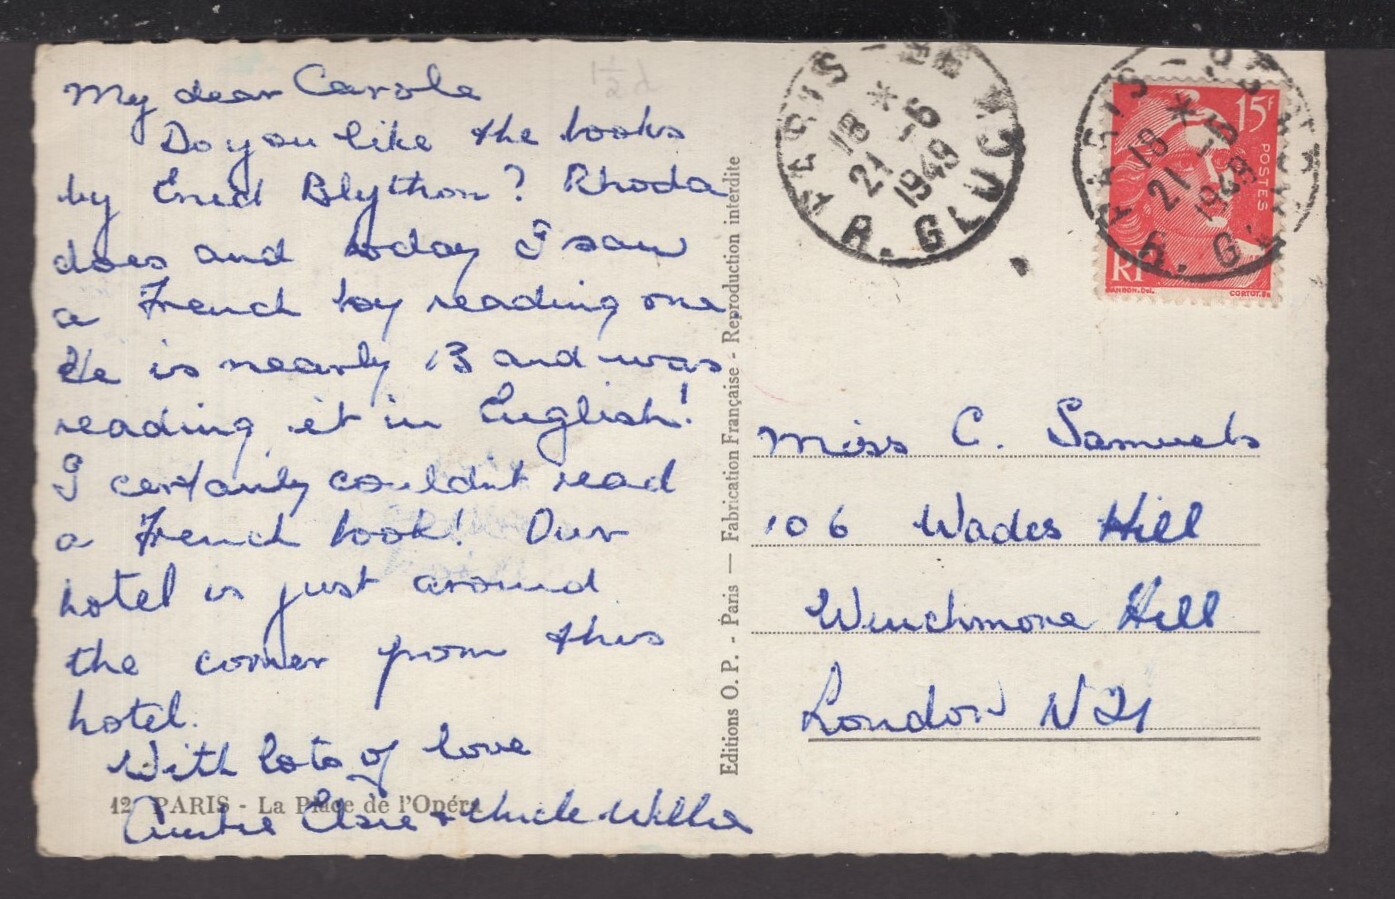 My dear Carole
Do you like the books
by Enid Blython? Rhoda
does and today I saw
a French boy reading one
He is nearly 13 and was
reading it in English!
I certainly couldn't read
a French book! Our
hotel is just around
the corner from this
hotel.
With lots of love
Auntie Elsie + Uncle Willie
12 PARIS - La Place de l'Opéra
1½d
Editions O. P. - Paris — Fabrication Française - Reproduction interdite
PARIS
18 *
21 -6
1949
R. GLUCK
15F
POSTES
RF
PARIS
18 *
21 -6
1949
R. GLUCK
Miss C. Samuels
106 Wades Hill
Winchmore Hill
London N21